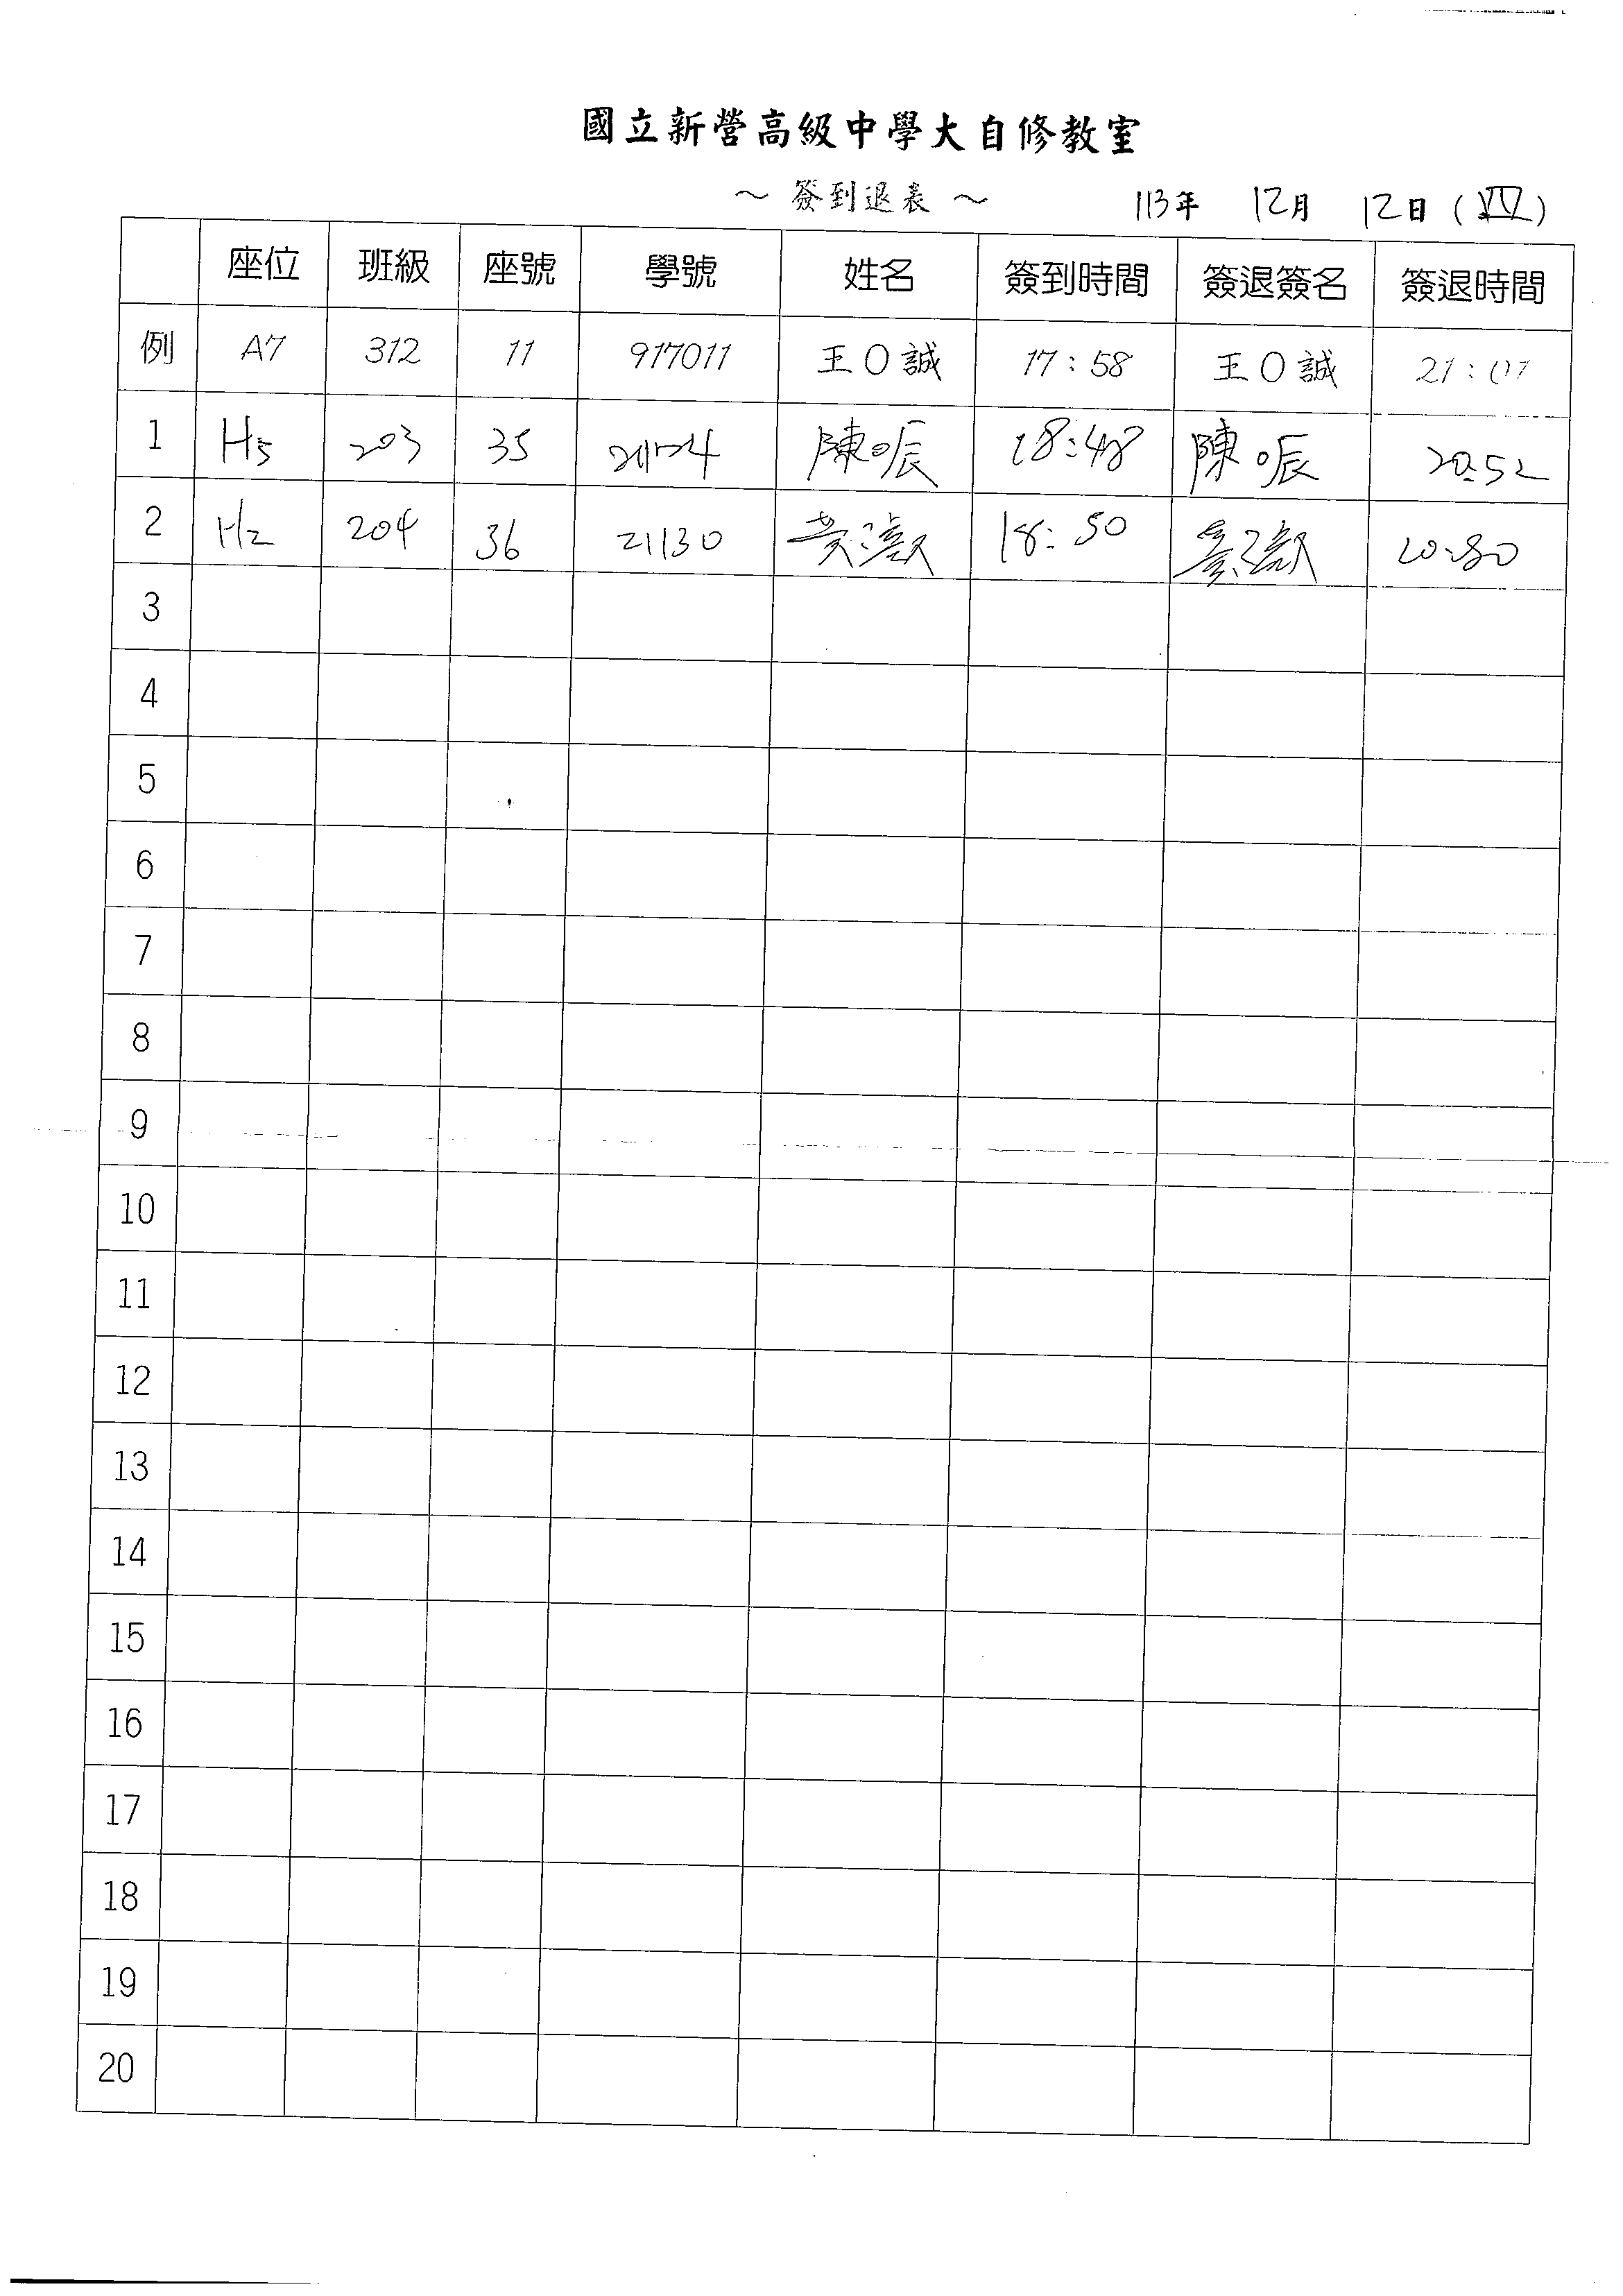 國立新營高級中學大自修教室
～ 簽到退表 ～ 113年 12月 12日 (IV)
座位 班級 座號 學號 姓名 簽到時間 簽退簽名 簽退時間
例 A7 312 11 917011 王O誠 17:58 王O誠 21:01
1 H5 203 35 陳o宸 18:48 陳o宸 20:52
2 H2 204 36 211130 黃 18:50
3
4
5
6
7
8
9
10
11
12
13
14
15
16
17
18
19
20